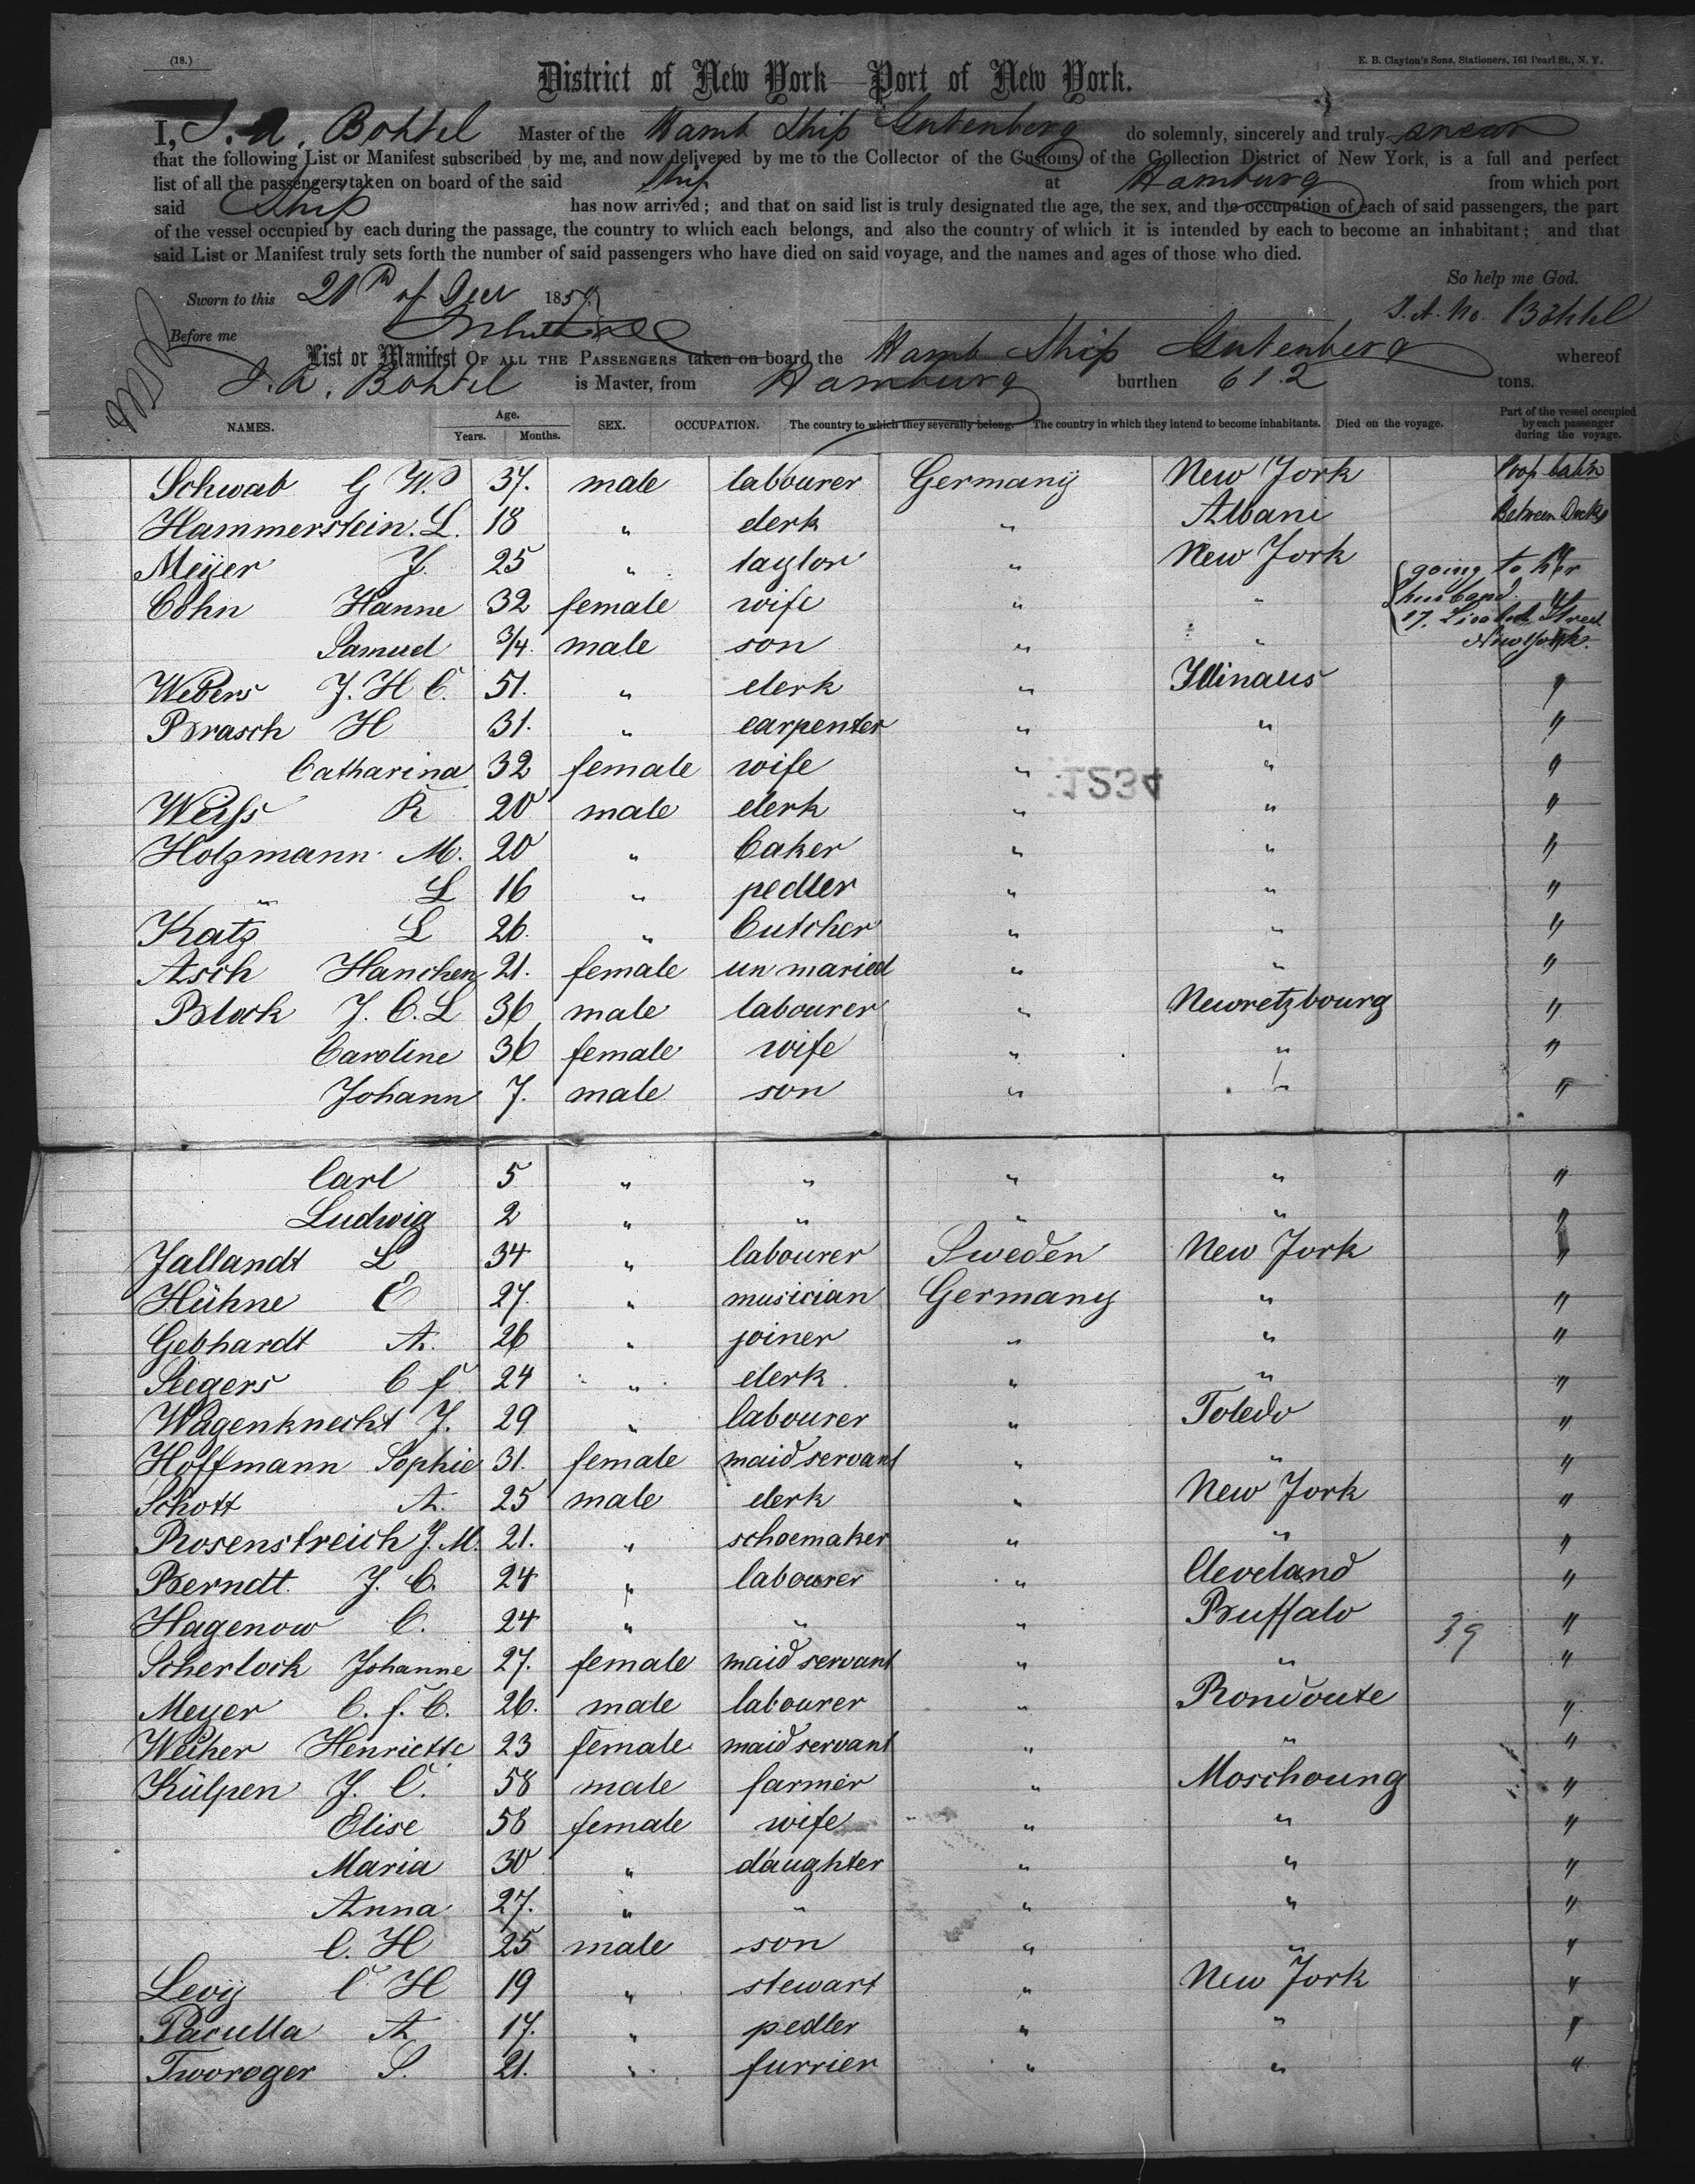 (18.)
E. B. Clayton's Sons, Stationers, 161 Pearl St., N. Y.
District of New York—Port of New York.
I, J. A. Bohtel Master of the Hamb Ship Gutenberg do solemnly, sincerely and truly swear
that the following List or Manifest subscribed by me, and now delivered by me to the Collector of the Customs of the Collection District of New York, is a full and perfect
list of all the passengers taken on board of the said Ship at Hamburg from which port
said Ship has now arrived; and that on said list is truly designated the age, the sex, and the occupation of each of said passengers, the part
of the vessel occupied by each during the passage, the country to which each belongs, and also the country of which it is intended by each to become an inhabitant; and that
said List or Manifest truly sets forth the number of said passengers who have died on said voyage, and the names and ages of those who died.
So help me God.
Sworn to this of 185
Before me
List or Manifest OF ALL THE PASSENGERS taken on board the Hamb Ship Gutenberg whereof
J. A. Bohtel is Master, from Hamburg burthen 612 tons.
NAMES. Age. Years. Months. SEX. OCCUPATION. The country to which they severally belong. The country in which they intend to become inhabitants. Died on the voyage. Part of the vessel occupied by each passenger during the voyage.
Schwab G W. 37. male labourer Germany New York
Hammerstein. L. 18 " clerk " Albani Between Decks
Meÿer J. 25 " taylor " New York "
Cohn Hanne 32 female wife " " {going to her husband. 17. Street New York. "
Samuel 3/4 male son " " "
Webers J. H C. 51. " clerk " Illinaus "
Brasch H 31. " carpenter " " "
Catharina 32 female wife " " "
1234
Weiss R 20 male clerk " " "
Holzmann M. 20 " baker " " "
" L 16 " pedler " " "
Katz L 26. " butcher " " "
Asch Hanchen 21. female un maried " " "
Block J. C. L 36 male labourer " Newretzbourg "
Caroline 36 female wife " " "
Johann 7. male son " " "
Carl 5 " " " " "
Ludwig 2 " " " " "
Jallandt L 34 " labourer Sweden New York "
Hühne E 27. " musician Germany " "
Gebhardt A. 26 " joiner " " "
Seegers C f 24 " clerk " " "
Wagenknecht J. 29 " labourer " Toledo "
Hoffmann Sophie 31. female maid servant " " "
Schott A. 25 male clerk " New York "
Rosenstreich J. M. 21. " schoemaker " " "
Berndt J. C. 24 " labourer " Cleveland "
Hagenow C. 24 " " " Buffalo 39 "
Scherlock Johanne 27. female maid servant " " "
Meyer C. f. C. 26. male labourer " Rondoute "
Weiher Henriette 23 female maid servant " " "
Külpen J. C. 58 male farmer " Moschoung "
Elise 58 female wife " " "
Maria 30 " daughter " " "
Anna 27. " " " " "
C. H 25 male son " " "
Levÿ C H 19 " stewart " New York "
Paculla A 17. " pedler " " "
Tworoger S. 21. " furrier " " "